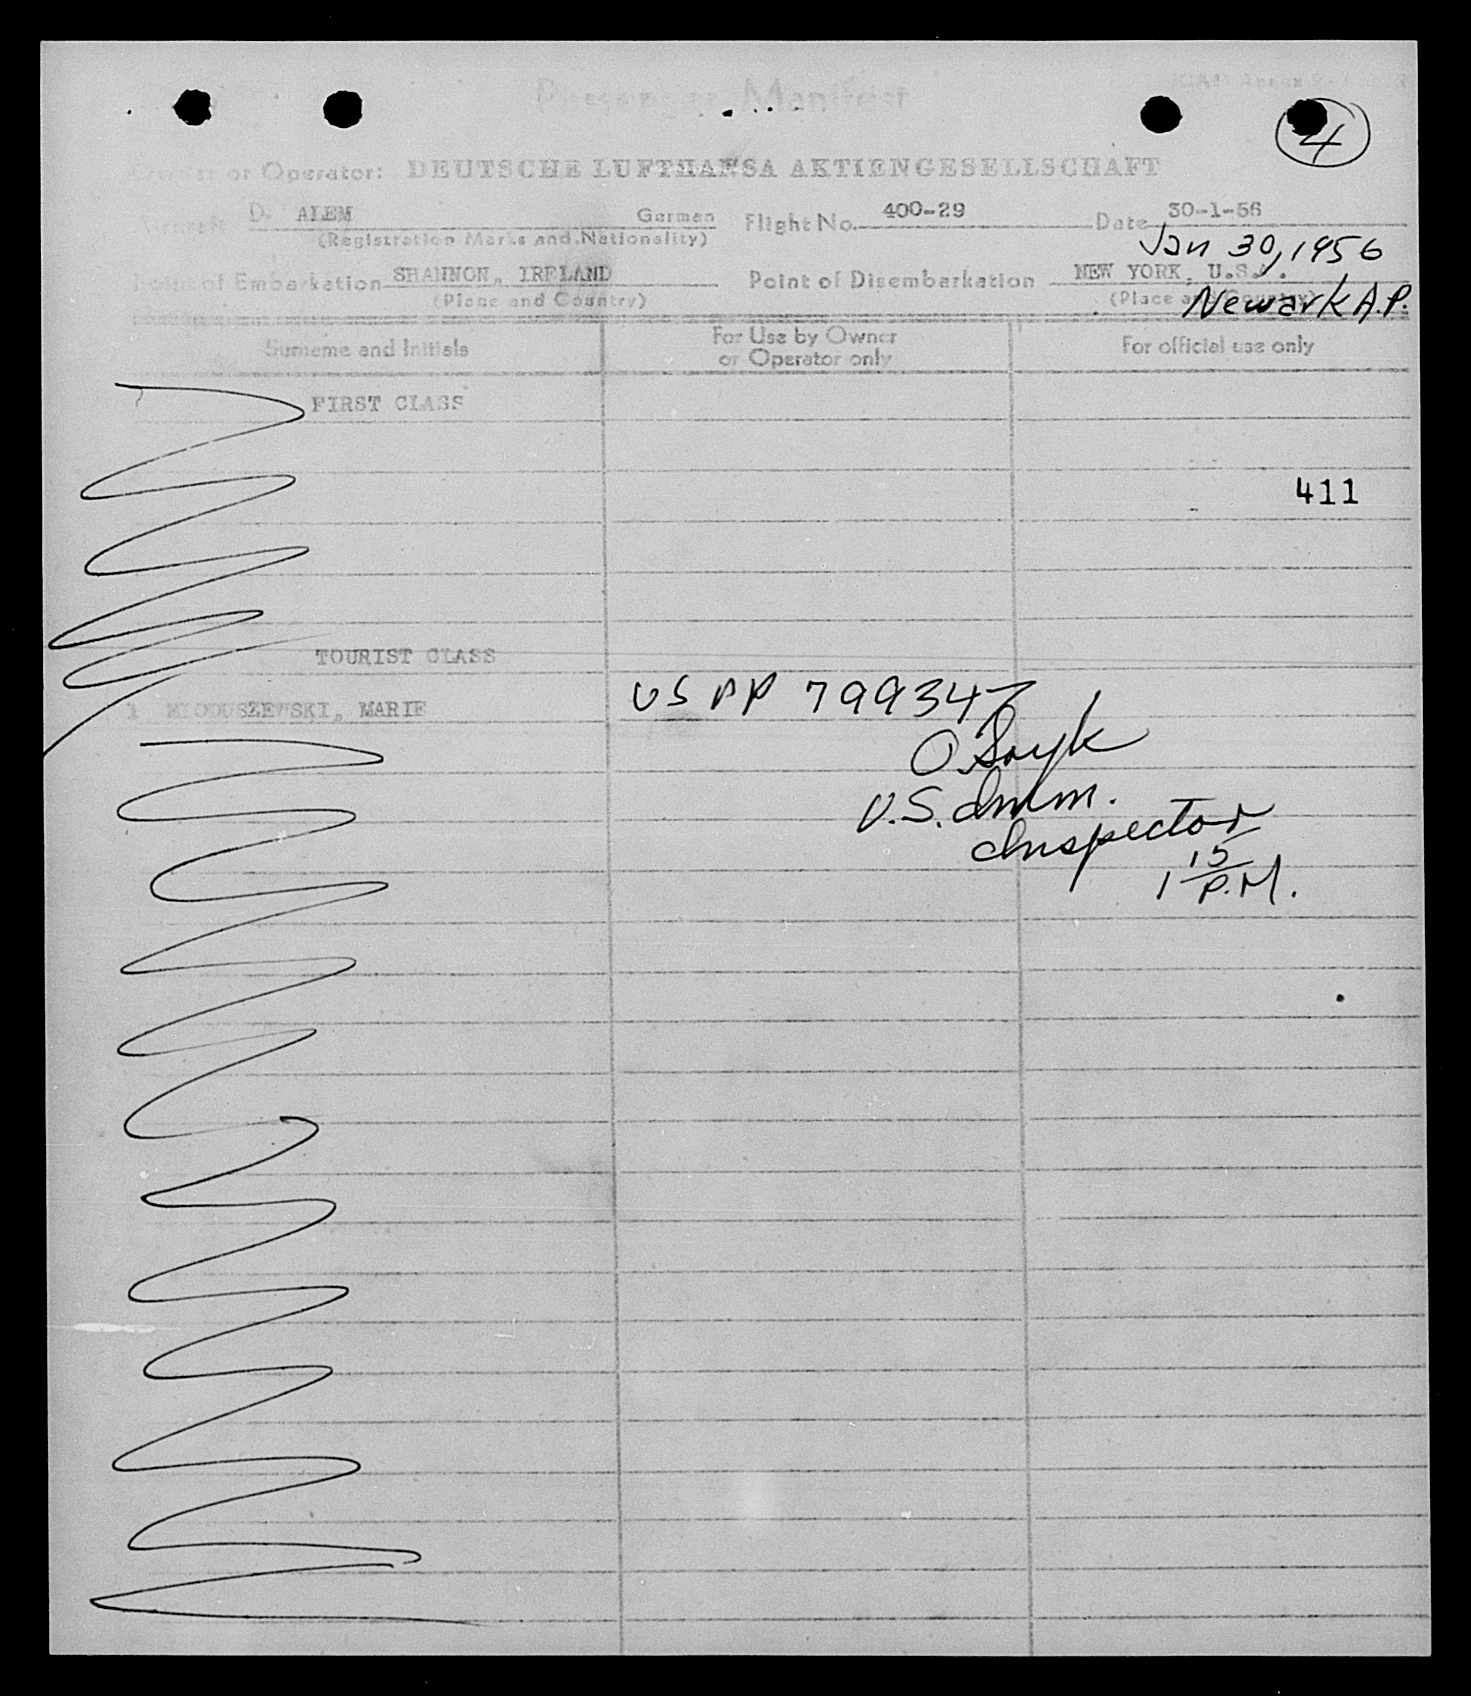 Passenger Manifest
4
Owner or Operator: DEUTSCHE LUFTHANSA AKTIENGESELLSCHAFT
Aircraft D. ALEM German Flight No. 400-29 Date 30-1-56
(Registration Marks and Nationality)
Jan 30, 1956
Point of Embarkation SHANNON, IRELAND Point of Disembarkation NEW YORK, U.S.A.
(Place and Country) (Place and Country)
Newark A.P.
Surname and Initials For Use by Owner or Operator only For official use only
FIRST CLASS
411
TOURIST CLASS
1 MIODUSZEWSKI, MARIE US PP 799347
U.S. Imm.
Inspector
1 15 P.M.